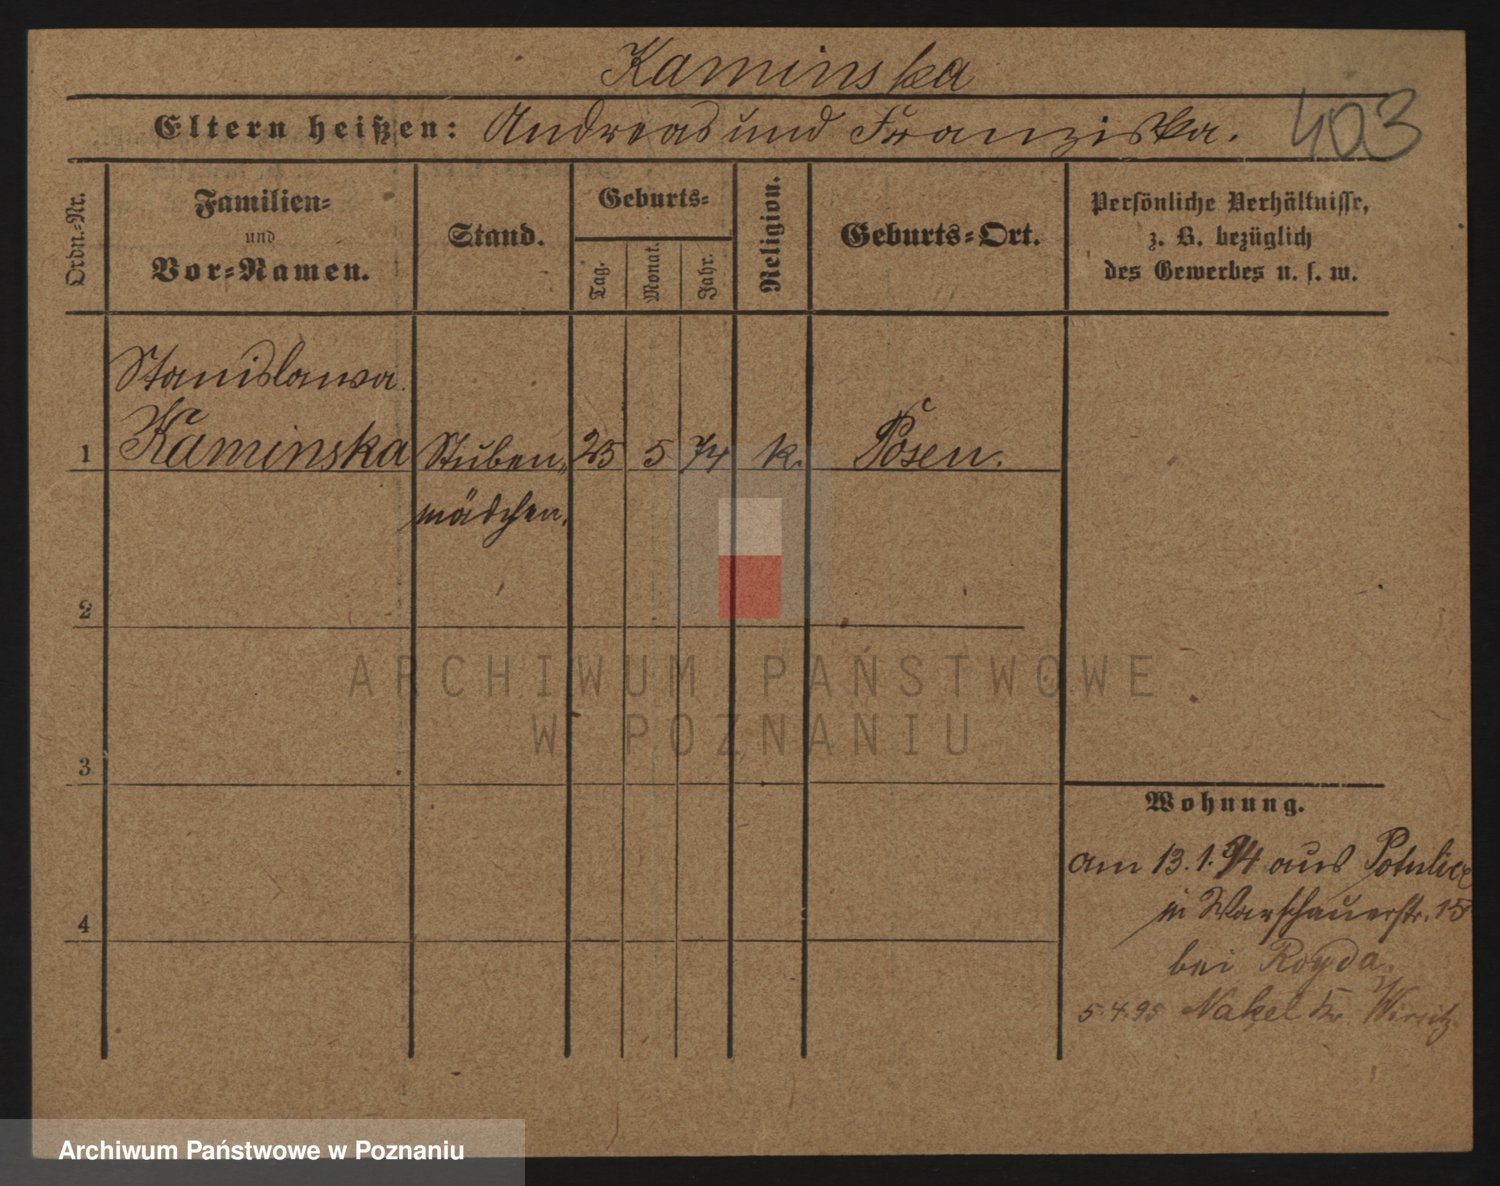 Kaminska
Eltern heißen: Andreas und Franziska.
403
Ordn.-Nr.
Familien-
und
Vor-Namen.
Stand.
Geburts-
Tag.
Monat.
Jahr.
Religion.
Geburts-Ort.
Persönliche Verhältnisse,
z. B. bezüglich
des Gewerbes u. s. w.
Stanislawa
1 Kaminska Stuben„ 25 5 74 k. Posen.
mädchen.
2
3
4
Wohnung.
am 13.1.94 aus Potulice
in Warschauerstr. 15
bei Royda.
5.4.95 Nakel Kr. Wirsitz
ARCHIWUM PAŃSTWOWE
W POZNANIU
Archiwum Państwowe w Poznaniu